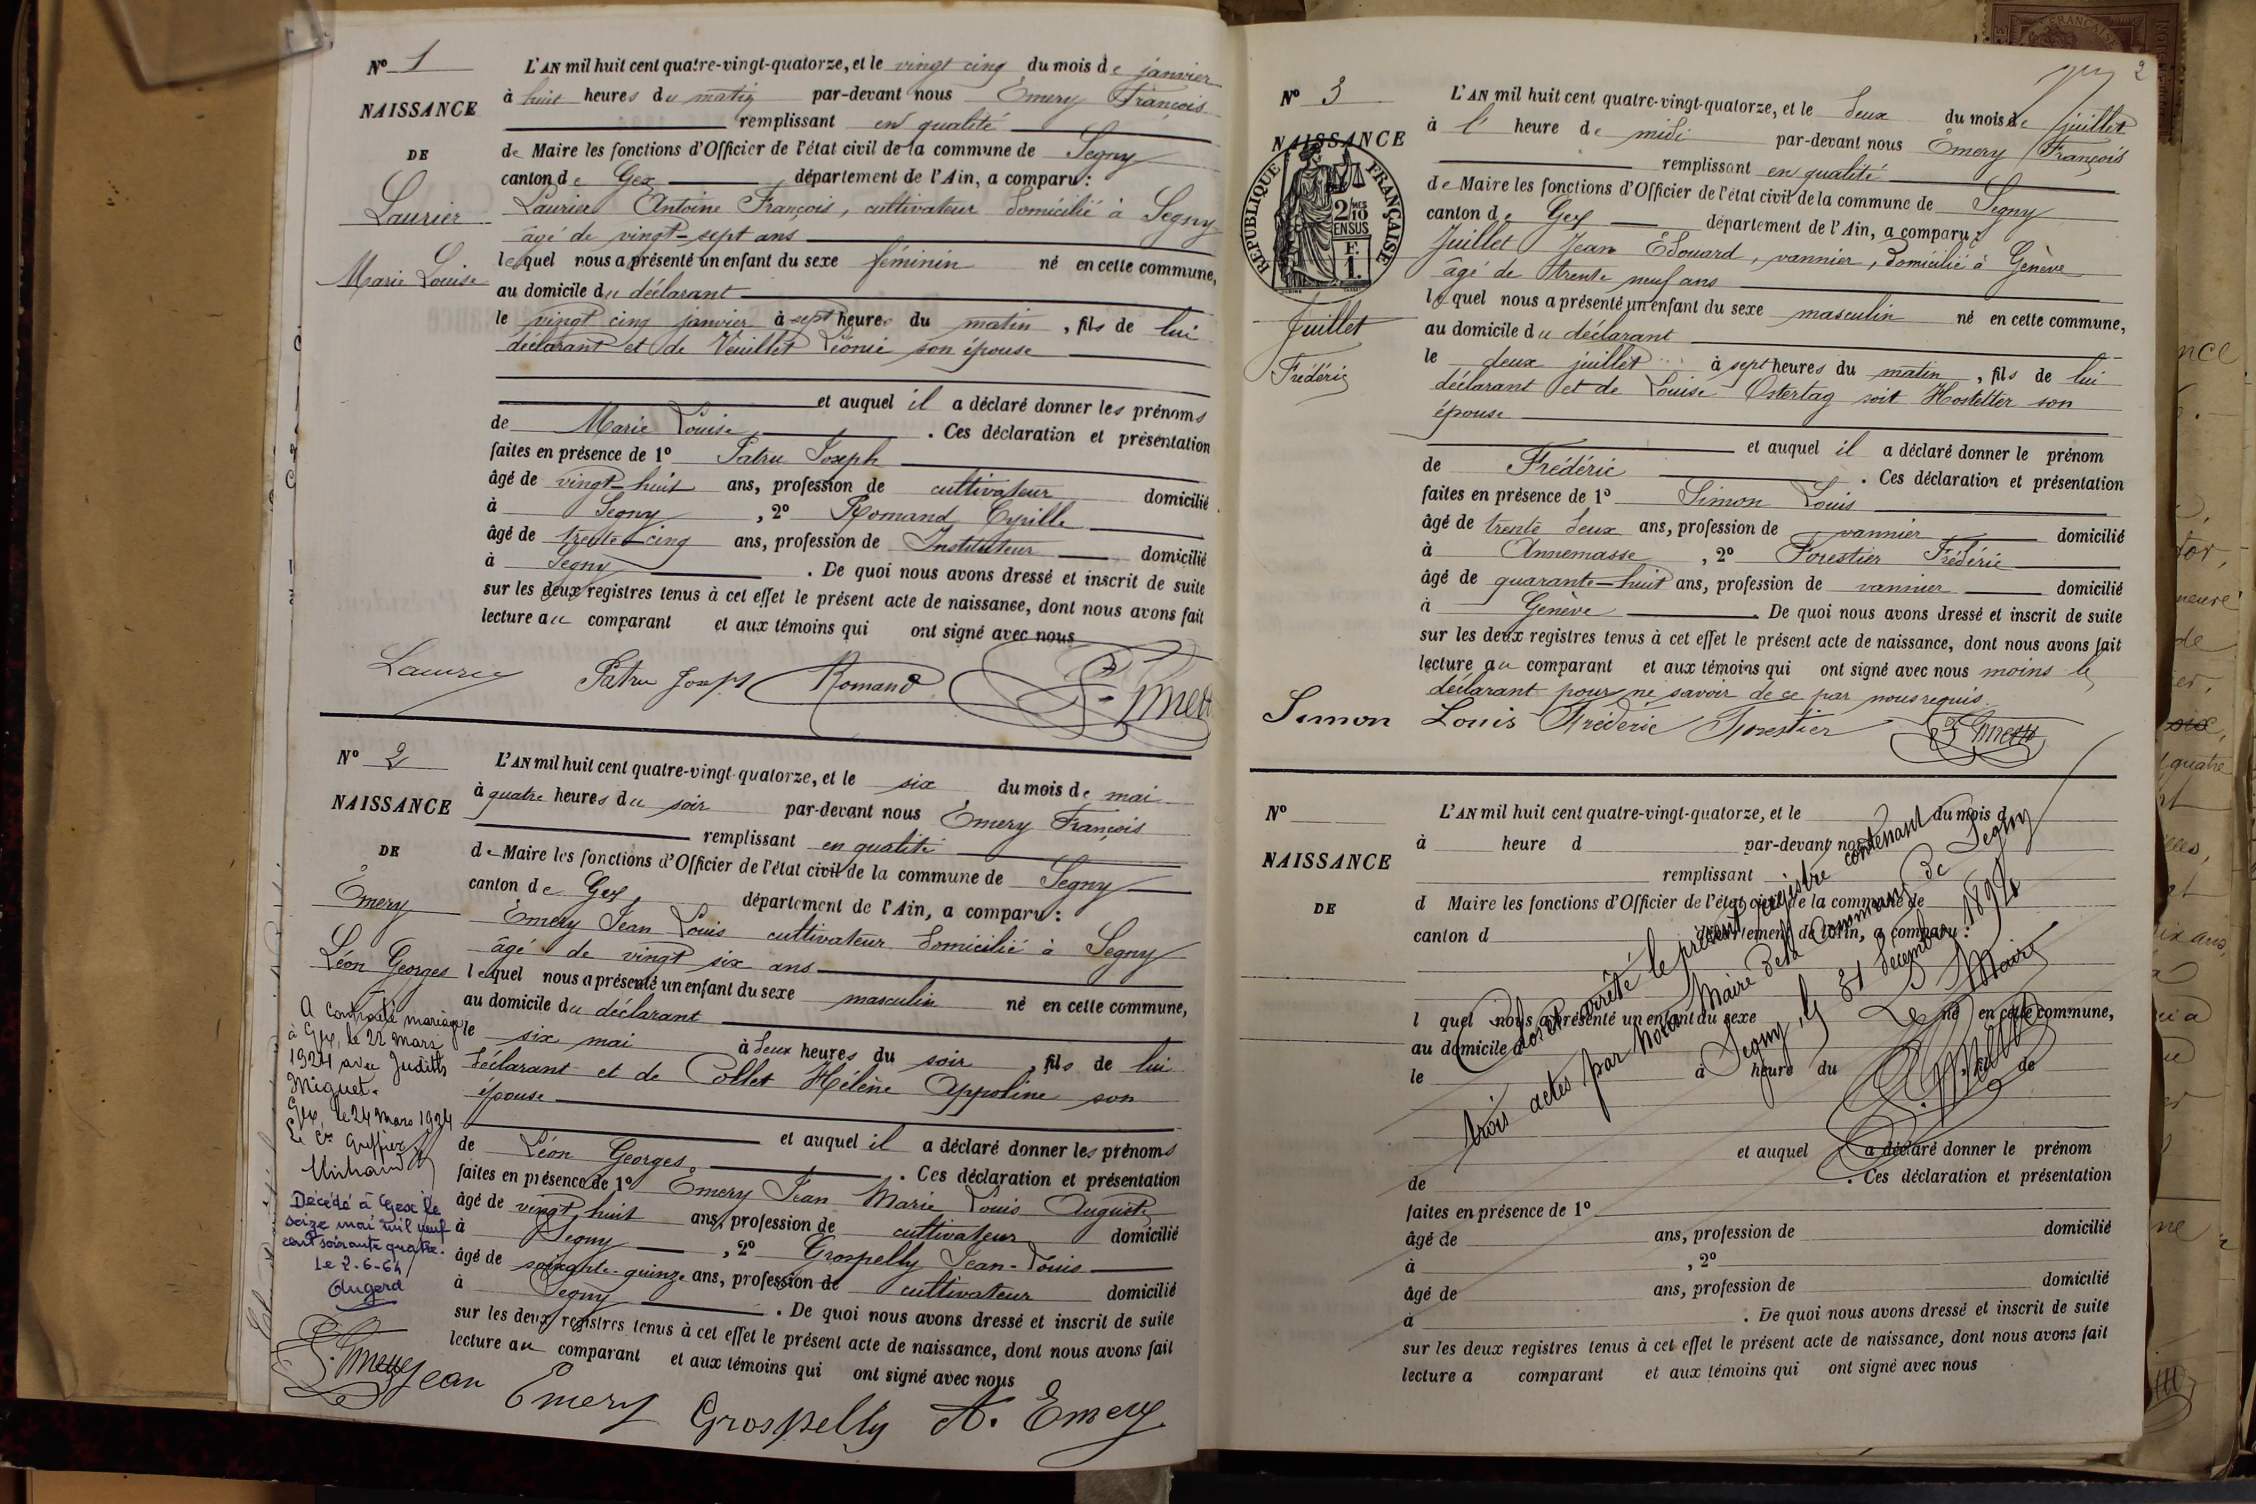 N° 1
NAISSANCE
DE
Laurier
Marie Louise
L'AN mil huit cent quatre-vingt-quatorze, et le vingt cinq du mois de janvier
à huit heures du matin par-devant nous Emery François
remplissant en qualité
de Maire les fonctions d'Officier de l'état civil de la commune de Segny
canton de Gex département de l'Ain, a comparu :
Laurier Antoine François, cultivateur domicilié à Segny
âgé de vingt-sept ans
lequel nous a présenté un enfant du sexe féminin né en cette commune,
au domicile du déclarant
le vingt cinq janvier à sept heures du matin, fils de lui
déclarant et de Veuillet Léonie son épouse
et auquel il a déclaré donner les prénoms
de Marie Louise. Ces déclaration et présentation
faites en présence de 1° Patru Joseph
âgé de vingt-huit ans, profession de cultivateur domicilié
à Segny, 2° Romand Cyrille
âgé de trente-cinq ans, profession de Instituteur domicilié
à Segny. De quoi nous avons dressé et inscrit de suite
sur les deux registres tenus à cet effet le présent acte de naissance, dont nous avons fait
lecture au comparant et aux témoins qui ont signé avec nous
Laurier Patru Joseph Romand F. Emery
N° 2
NAISSANCE
DE
Emery
Léon Georges
A contracté mariage
à Gex, le 22 mars
1924 avec Judith
Miguet.
Gex, le 24 Mars 1924
Le Cis Greffier
Michaud
Décédé à Gex le
seize mai mil neuf
cent soixante quatre.
Le 2-6-64
Augerd
L'AN mil huit cent quatre-vingt-quatorze, et le six du mois de mai
à quatre heures du soir par-devant nous Emery François
remplissant en qualité
de Maire les fonctions d'Officier de l'état civil de la commune de Segny
canton de Gex, département de l'Ain, a comparu :
Emery Jean Louis cultivateur domicilié à Segny
âgé de vingt six ans
lequel nous a présenté un enfant du sexe masculin né en cette commune,
au domicile du déclarant
le six mai à deux heures du soir, fils de lui
déclarant et de Collet Hélène Appoline son
épouse
et auquel il a déclaré donner les prénoms
de Léon Georges. Ces déclaration et présentation
faites en présence de 1° Emery Jean Marie Louis Auguste
âgé de vingt huit ans, profession de cultivateur domicilié
à Segny, 2° Grospelly Jean-Louis
âgé de soixante-quinze ans, profession de cultivateur domicilié
à Segny. De quoi nous avons dressé et inscrit de suite
sur les deux registres tenus à cet effet le présent acte de naissance, dont nous avons fait
lecture au comparant et aux témoins qui ont signé avec nous
F. Emery Jean Emery Grospelly A. Emery
2
N° 3
NAISSANCE
RÉPUBLIQUE FRANÇAISE
2/10 EN SUS
F. 1.
Juillet
Frédéric
L'AN mil huit cent quatre-vingt-quatorze, et le deux du mois de juillet
à l' heure de midi par-devant nous Emery François
remplissant en qualité
de Maire les fonctions d'Officier de l'état civil de la commune de Segny
canton de Gex département de l'Ain, a comparu :
Juillet Jean Edouard, vannier, domicilié à Genève
âgé de trente neuf ans
lequel nous a présenté un enfant du sexe masculin né en cette commune,
au domicile du déclarant
le deux juillet à sept heures du matin, fils de lui
déclarant et de Louise Ostertag soit Hostetter son
épouse
et auquel il a déclaré donner le prénom
de Frédéric. Ces déclaration et présentation
faites en présence de 1° Simon Louis
âgé de trente deux ans, profession de vannier domicilié
à Annemasse, 2° Forestier Frédéric
âgé de quarante-huit ans, profession de vannier domicilié
à Genève. De quoi nous avons dressé et inscrit de suite
sur les deux registres tenus à cet effet le présent acte de naissance, dont nous avons fait
lecture au comparant et aux témoins qui ont signé avec nous moins le
déclarant pour ne savoir de ce par nous requis.
Simon Louis Frédéric Forestier F. Emery
N°
NAISSANCE
DE
L'AN mil huit cent quatre-vingt-quatorze, et le du mois d
à heure d par-devant nous
remplissant
d Maire les fonctions d'Officier de l'état civil de la commune de
canton d département de l'Ain, a comparu :
l quel nous a présenté un enfant du sexe né en cette commune,
au domicile d
le à heure du , fil de
et auquel a déclaré donner le prénom
de . Ces déclaration et présentation
faites en présence de 1°
âgé de ans, profession de domicilié
à , 2°
âgé de ans, profession de domicilié
à . De quoi nous avons dressé et inscrit de suite
sur les deux registres tenus à cet effet le présent acte de naissance, dont nous avons fait
lecture a comparant et aux témoins qui ont signé avec nous
Clos et arrêté le présent registre contenant
trois actes par nous Maire de la Commune de Segny
à Segny, le 31 décembre 1894
Le Maire
F. Emery